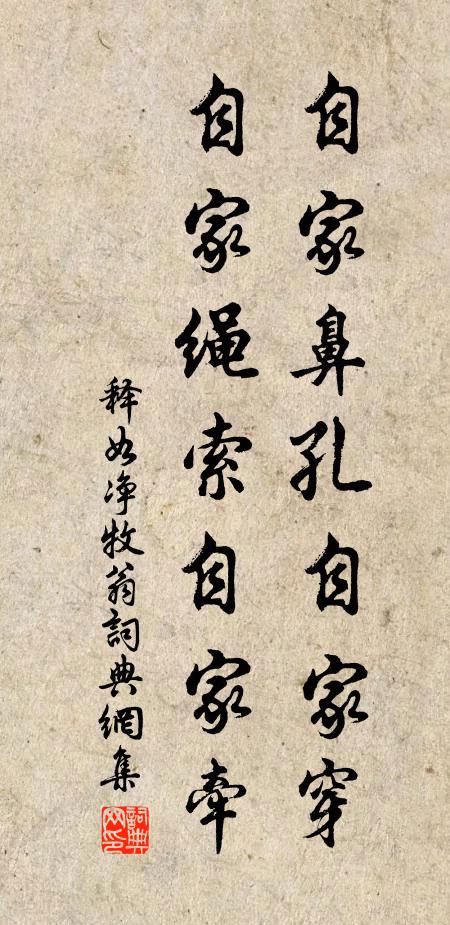 自家鼻孔自家穿
自家绳索自家牵
释如净牧翁詞典網集
詞典网印